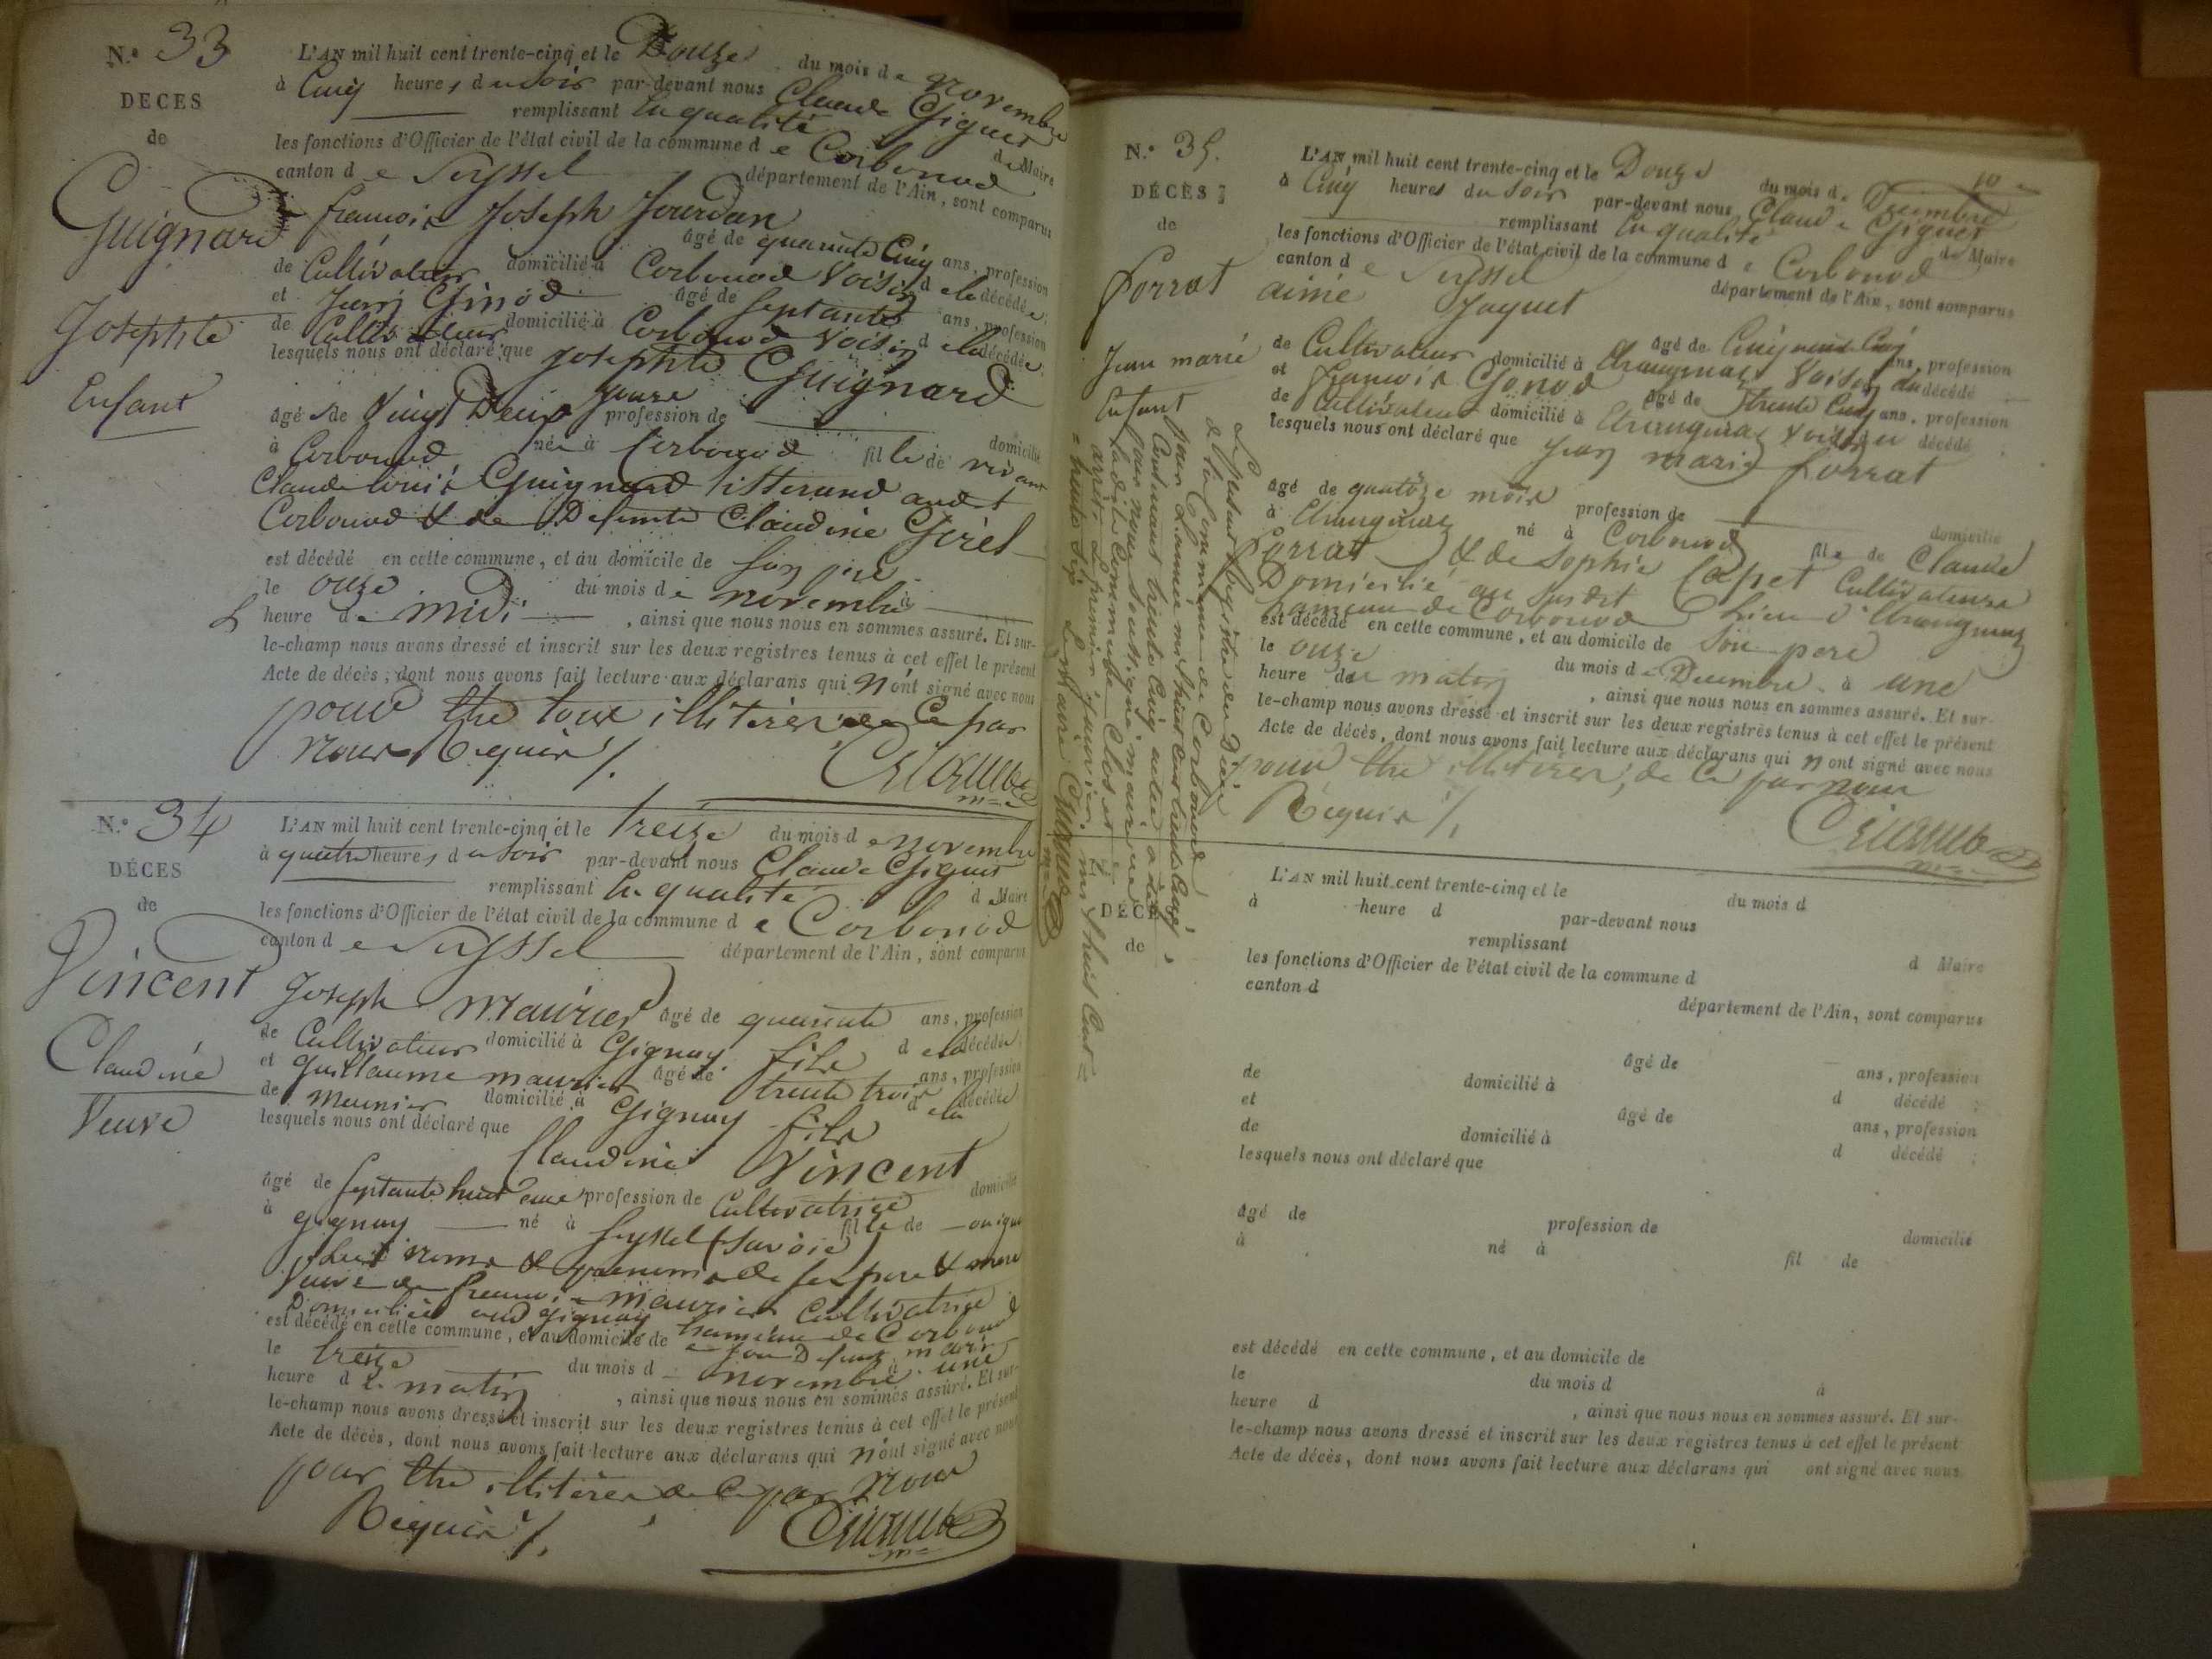 N.o 33
DECES
de
Guignard
Josephte
Enfant
L'AN mil huit cent trente-cinq et le Douze du mois de Novembre
à Cinq heures du Soir par-devant nous Claude Giguet
remplissant En qualité de Maire
les fonctions d'Officier de l'état civil de la commune de Corbonod
canton de Seyssel département de l'Ain, sont comparus
francois Joseph Jourdan
âgé de quarante Cinq ans, profession
de Cultivateur domicilié à Corbonod Voisin de la décédée;
et Jean Ginod âgé de Septante ans, profession
de Cultivateur domicilié à Corbonod Voisin de la décédée;
lesquels nous ont déclaré que Josephte Guignard
âgée de Vingt Deux jours profession de domicilié
à Corbonod née à Corbonod fille de vivant
Claude louis Guignard
Corbonod & de Defunte Claudine Girel
est décédé en cette commune, et au domicile de Son père
le onze du mois de novembre à
heure de midi, ainsi que nous nous en sommes assuré. Et sur-
le-champ nous avons dressé et inscrit sur les deux registres tenus à cet effet le présent
Acte de décès, dont nous avons fait lecture aux déclarans qui n'ont signé avec nous
pour être tous illiterés de Ce par
nous Requis /.
N.o 34
DÉCES
de
Vincent
Claudine
Veuve
L'AN mil huit cent trente-cinq et le treize du mois de novembre
à quatre heures du Soir par-devant nous Claude Giguet
remplissant En qualité de Maire
les fonctions d'Officier de l'état civil de la commune de Corbonod
canton de Seyssel département de l'Ain, sont comparus
Joseph Maurier âgé de quarante ans, profession
de Cultivateur domicilié à Gignay fils de la décédée;
et Guillaume maurier âgé de trente trois ans, profession
de meunier domicilié à Gignay fils de la décédée
lesquels nous ont déclaré que
Claudine Vincent
âgé de Septante huit ans profession de Cultivatrice domicilié
à gignay né à Seyssel (Savoie) fille de
noms & prenoms de ses pere & mere
Veuve de francois maurier Cultivatrice
Domiciliée aud gignay hameau de Corbonod
est décédé en cette commune, et au domicile de Son Defunt mari
le treize du mois de novembre à une
heure du matin, ainsi que nous nous en sommes assuré. Et sur-
le-champ nous avons dressé et inscrit sur les deux registres tenus à cet effet le présent
Acte de décès, dont nous avons fait lecture aux déclarans qui n'ont signé avec nous
pour être illiterés de Ce par nous
Requis /.
N.o 35.
DÉCÈS
de
forrat
Jean marie
Enfant
10
L'AN mil huit cent trente-cinq et le Douze du mois de Decembre
à Cinq heures du Soir par-devant nous Claude Giguet
remplissant En qualité de Maire
les fonctions d'Officier de l'état civil de la commune de Corbonod
canton de Seyssel département de l'Ain, sont comparus
aimé Jaquet
âgé de Cinquante Cinq ans, profession
de Cultivateur domicilié à Voisin du décédé
et francois Gonod âgé de trente Cinq ans, profession
de Cultivateur domicilié à Voisin du décédé;
lesquels nous ont déclaré que Jean marie forrat
âgé de quatorze mois profession de domicilié
à né à Corbonod fils de Claude
forrat & de Sophie Capet Cultivateurs
Domicilié au susdit lieu
hameau de Corbonod
est décédé en cette commune, et au domicile de Son pere
le onze du mois de Decembre à une
heure du matin, ainsi que nous nous en sommes assuré. Et sur-
le-champ nous avons dressé et inscrit sur les deux registres tenus à cet effet le présent
Acte de décès, dont nous avons fait lecture aux déclarans qui n'ont signé avec nous
pour être illiterés, de Ce par nous
Requis /.
Le présent Registre des Décès
de la Commune de Corbonod
pour L'année mil huit cent trente Cinq,
Contenant trente Cinq actes a été
par nous soussigné maire de
ladite Commune Clos et
arrêté Le premier janvier mil huit Cent
trente Six Le maire
DÉCÈ
de
L'AN mil huit cent trente-cinq et le du mois d
à heure d par-devant nous
remplissant d Maire
les fonctions d'Officier de l'état civil de la commune d
canton d département de l'Ain, sont comparus
âgé de ans, profession
de domicilié à d décédé;
et âgé de ans, profession
de domicilié à d décédé;
lesquels nous ont déclaré que
âgé de profession de domicilié
à né à fil de
est décédé en cette commune, et au domicile de
le du mois d à
heure d, ainsi que nous nous en sommes assuré. Et sur-
le-champ nous avons dressé et inscrit sur les deux registres tenus à cet effet le présent
Acte de décès, dont nous avons fait lecture aux déclarans qui ont signé avec nous